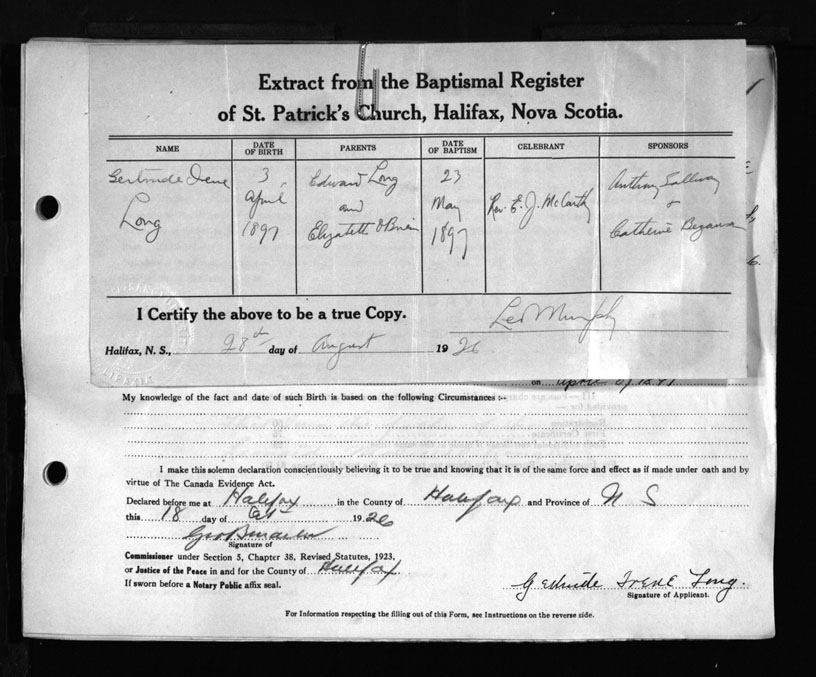 Extract from the Baptismal Register
of St. Patrick's Church, Halifax, Nova Scotia.
NAME DATE OF BIRTH PARENTS DATE OF BAPTISM CELEBRANT SPONSORS
Gertrude Irene 3 Edward Long 23 Anthony
Long April and May Rev. E. J. McCarthy &
1897 Elizabeth O'Brien 1897 Catherine
I Certify the above to be a true Copy. Leo Murphy
Halifax, N. S., 28th day of August 1926
on April
My knowledge of the fact and date of such Birth is based on the following Circumstances :-
I make this solemn declaration conscientiously believing it to be true and knowing that it is of the same force and effect as if made under oath and by
virtue of The Canada Evidence Act.
Declared before me at Halifax in the County of Halifax and Province of N S
this 18 day of Oct 1926
Signature of
Commissioner under Section 5, Chapter 38, Revised Statutes, 1923,
or Justice of the Peace in and for the County of Halifax
If sworn before a Notary Public affix seal.
Gertrude Irene Long.
Signature of Applicant.
For Information respecting the filling out of this Form, see Instructions on the reverse side.